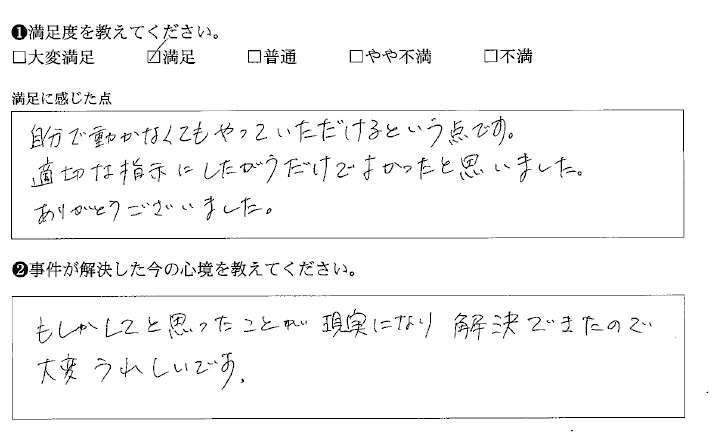 ❶満足度を教えてください。
□大変満足 ☑満足 □普通 □やや不満 □不満
満足に感じた点
自分で動かなくてもやっていただけるという点です。
適切な指示にしたがうだけでよかったと思いました。
ありがとうございました。
❷事件が解決した今の心境を教えてください。
もしかしてと思ったことが現実になり解決できたので
大変うれしいです。